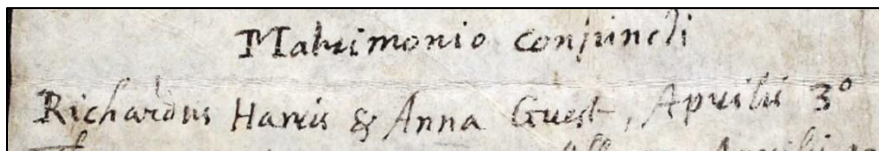 Matrimonio conjuncti
Richardus Harris & Anna Guest, Aprilis 3º
Aprilis